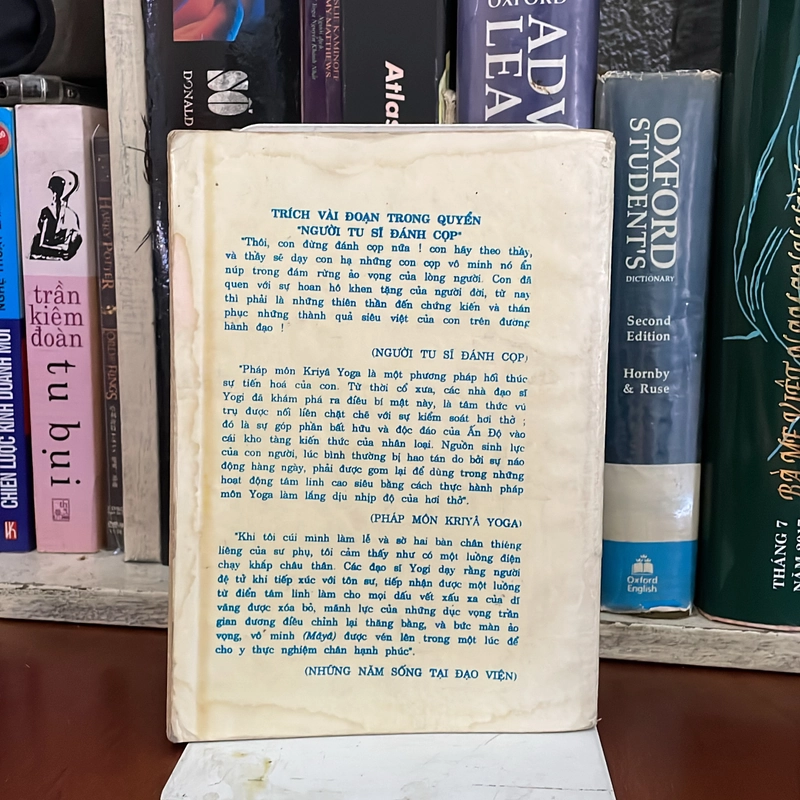 TRÍCH VÀI ĐOẠN TRONG QUYỂN
"NGƯỜI TU SĨ ĐÁNH CỌP"
"Thôi, con đừng đánh cọp nữa ! con hãy theo thầy,
và thầy sẽ dạy con hạ những con cọp vô minh nó ẩn
núp trong đám rừng ảo vọng của lòng người. Con đã
quen với sự hoan hô khen tặng của người đời, từ nay
thì phải là những thiên thần đến chứng kiến và thán
phục những thành quả siêu việt của con trên đường
hành đạo !
(NGƯỜI TU SĨ ĐÁNH CỌP)
"Pháp môn Kriyâ Yoga là một phương pháp hối thúc
sự tiến hoá của con. Từ thời cổ xưa, các nhà đạo sĩ
Yogi đã khám phá ra điều bí mật này, là tâm thức vũ
trụ được nối liền chặt chẽ với sự kiểm soát hơi thở ;
đó là sự góp phần bất hữu và độc đáo của Ấn Độ vào
cái kho tàng kiến thức của nhân loại. Nguồn sinh lực
của con người, lúc bình thường bị hao tán do bởi sự náo
động hàng ngày, phải được gom lại để dùng trong những
hoạt động tâm linh cao siêu bằng cách thực hành pháp
môn Yoga làm lắng dịu nhịp độ của hơi thở".
(PHÁP MÔN KRIYÂ YOGA)
"Khi tôi cúi mình làm lễ và sờ hai bàn chân thiêng
liêng của sư phụ, tôi cảm thấy như có một luồng điện
chạy khắp châu thân. Các đạo sĩ Yogi dạy rằng người
đệ tử khi tiếp xúc với tôn sư, tiếp nhận được một luồng
từ điển tâm linh làm cho mọi dấu vết xấu xa của dĩ
vãng được xóa bỏ, mãnh lực của những dục vọng trần
gian đương điều chỉnh lại thăng bằng, và bức màn ảo
vọng, vô minh (Mâyâ) được vén lên trong một lúc để
cho y thực nghiệm chân hạnh phúc".
(NHỮNG NĂM SỐNG TẠI ĐẠO VIỆN)
CHIẾN LƯỢC KINH DOANH MỚI
trần
kiêm
đoàn
tu bụi
HARRY POTTER
DONALD
Atlas
OXFORD
OXFORD
STUDENT'S
DICTIONARY
Second
Edition
Hornby
& Ruse
Oxford
English
THÁNG 7